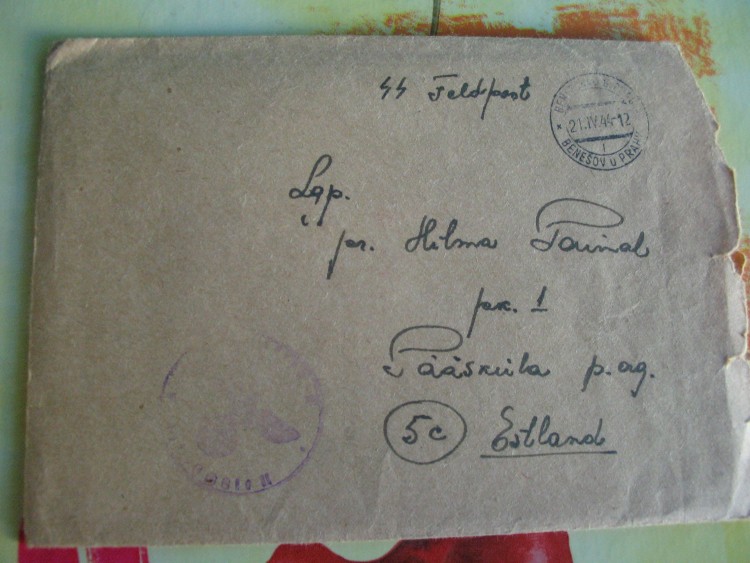 SS Feldpost
21.IV.44-12
BENEŠOV U PRAHY
Lgp.
pr. Hilma Tainal
pk. 1
Pääsküla p.ag.
5c Estland